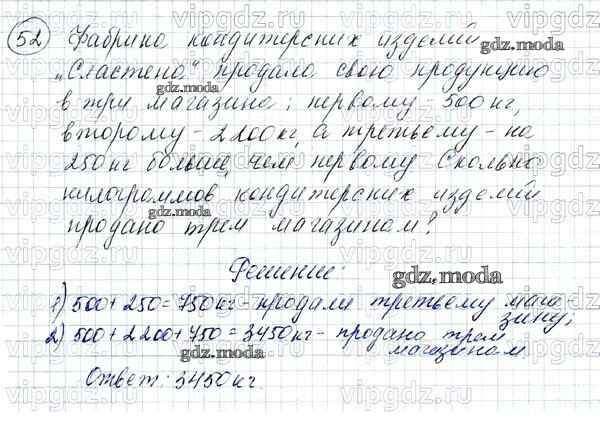 52 Фабрика кондитерских изделий
„Сластена“ продала свою продукцию
в три магазина: первому - 500 кг,
второму - 2200 кг, а третьему - на
250 кг больше, чем первому. Сколько
килограммов кондитерских изделий
продано трем магазинам?
Решение:
1) 500 + 250 = 750 кг - продали третьему мага-
зину;
2) 500 + 2200 + 750 = 3450 кг - продано трем
магазинам
Ответ: 3450 кг.
gdz.moda
vipgdz.com